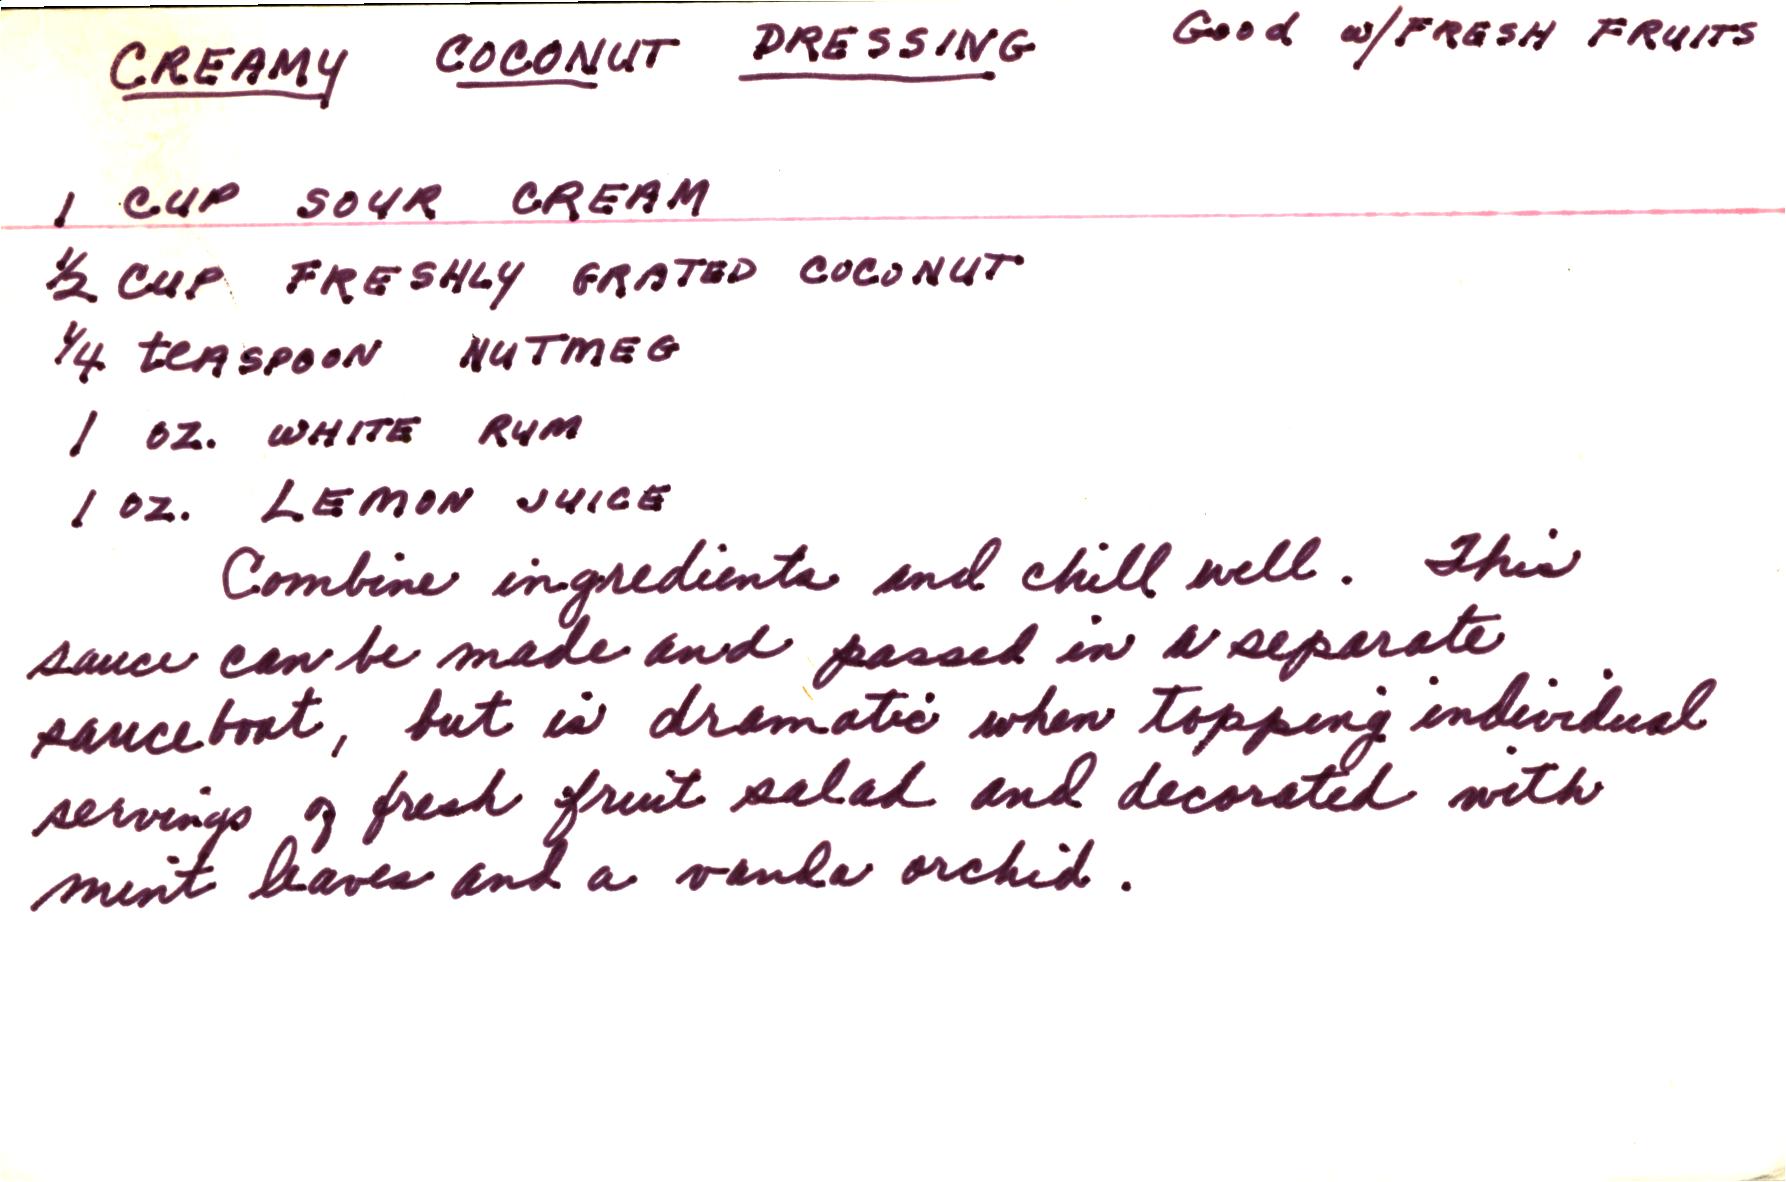 CREAMY COCONUT DRESSING Good w/FRESH FRUITS
1 CUP SOUR CREAM
1/2 CUP FRESHLY GRATED COCONUT
1/4 teASPOON NUTMEG
1 OZ. WHITE RUM
1 OZ. LEMON JUICE
Combine ingredients and chill well. This
sauce can be made and passed in a separate
sauceboat, but is dramatic when topping individual
servings of fresh fruit salad and decorated with
mint leaves and a vanda orchid.